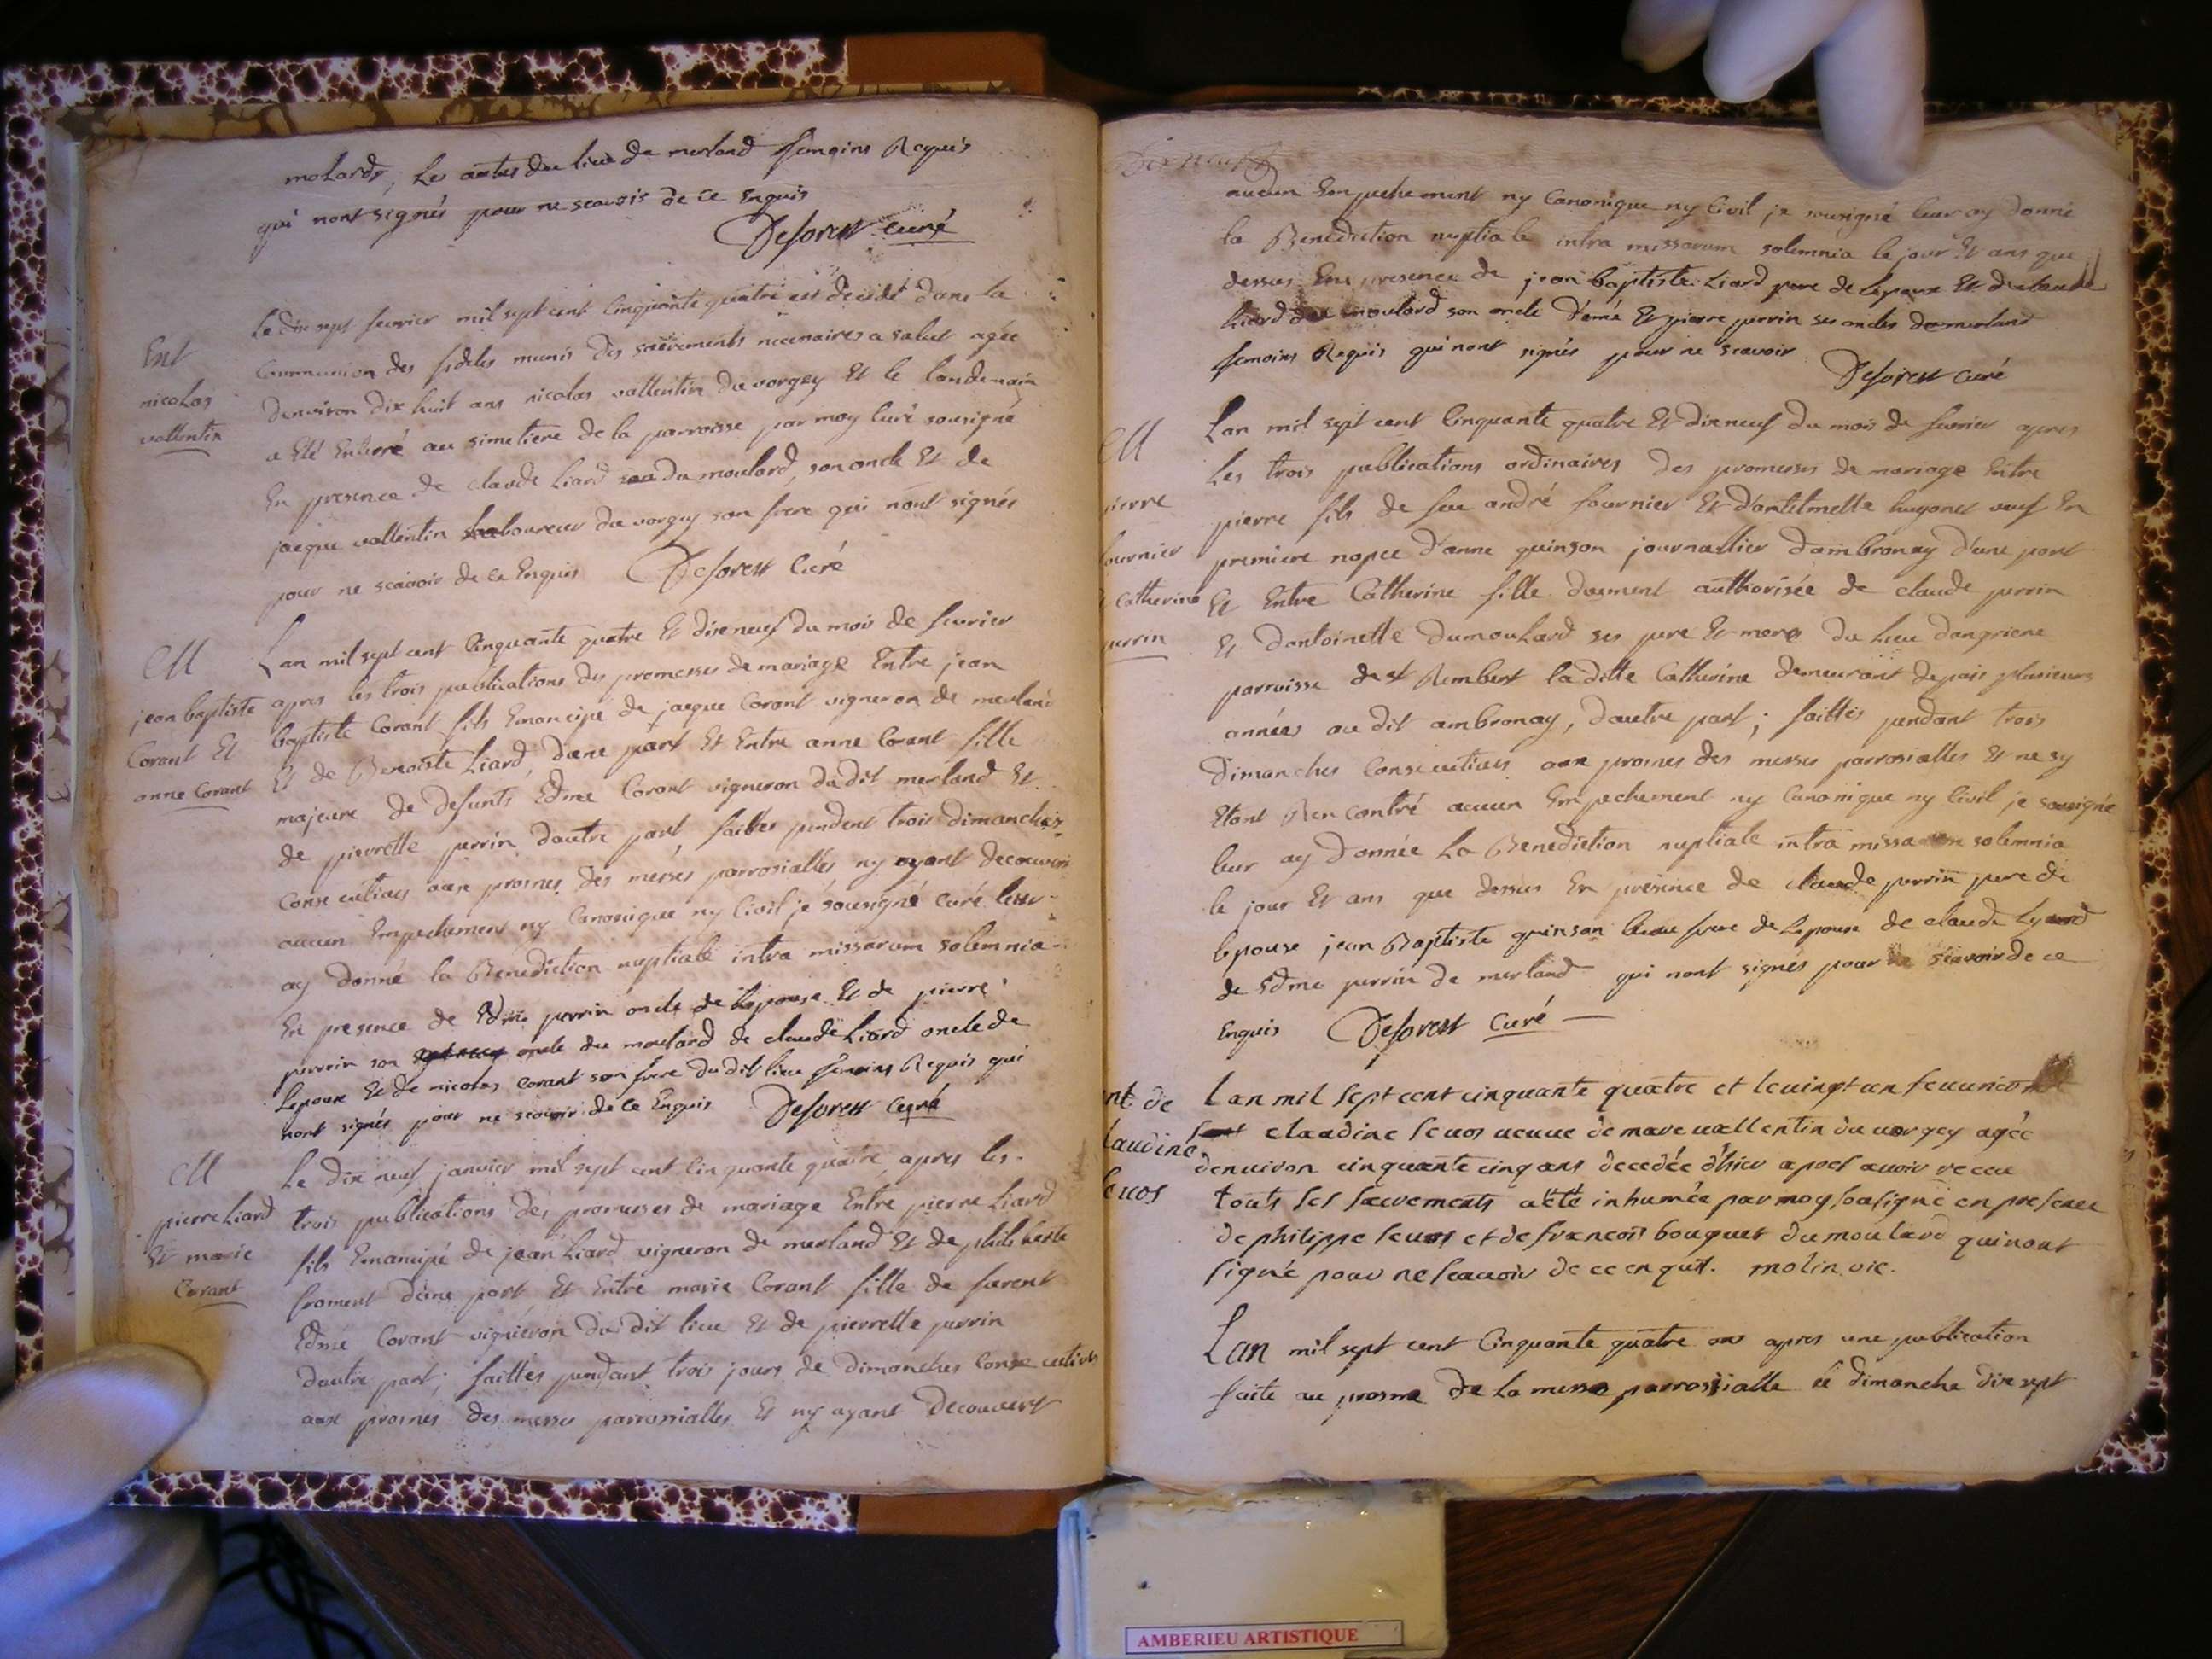 molards, Les autres du lieu de merland temoins Requis
qui nont signés pour ne scavoir de ce Enquis
Deforest curé
Ent
nicolas
vallentin
Le dix sept fevrier mil sept cent Cinquante quatre est decedé dans la
Communion des fideles munis des sacrements necessaires a salut agée
denviron dix huit ans nicolas vallentin du vorgey Et le landemain
a Eté Enterré au simetiere de la parroisse par moy Curé sousigné
En presence de claude Liard du moulard, son oncle Et de
jacque vallentin laboureur du vorgey son frere qui nont signés
pour ne scavoir de ce Enquis Deforest Curé
M
jean baptiste
Corant Et
anne Corant
Lan mil sept cent Cinquante quatre Et dixneuf du mois de fevrier
apres les trois publications des promesses de mariage Entre jean
baptiste Corant fils Emancipé de jacque Corant vigneron de merland
Et de Benoiste Liard, dune part Et Entre anne Corant fille
majeure de defunts Edme Corant vigneron du dit merland Et
de pierrette perrin dautre part, faittes pendent trois dimanches
Consecutives aux prosnes des messes parrosialles ny ayant decouvert
aucun Empechement ny Canonique ny Civil je sousigné Curé leur
ay donné la Bénédiction nuptiale intra missarum solemnia
En presence de Edme perrin oncle de Lepouse Et de pierre
perrin son oncle du moulard de claude Liard oncle de
Lepoux Et de nicolas Corant son frere du dit lieu temoins Requis qui
nont signés pour ne scavoir de ce Enquis Deforest Curé
M
pierre Liard
Et marie
Corant
Le dix neuf janvier mil sept cent Cinquante quatre, apres les
trois publications des promesses de mariage Entre pierre Liard
fils Emancipé de jean Liard vigneron de merland Et de philiberte
froment dune part Et Entre marie Corant fille de furent
Edme Corant vigneron du dit lieu Et de pierrette perrin
dautre part; faittes pendant trois jours de dimanches Consecutives
aux prosnes des messes parrossialles Et ny ayant decouvert
Dixneuf
aucun Empechement ny Canonique ny Civil je sousigné leur ay donné
la Benediction nuptiale intra missarum solemnia le jour Et ans que
dessus En presence de jean baptiste Liard pere de Lepoux Et de claude
Liard du moulard son oncle d'émé Et pierre perrin ses oncles de merland
temoins Requis qui nont signés pour ne scavoir
Deforest Curé
M
pierre
fournier
Catherine
perrin
Lan mil sept cent Cinquante quatre Et dixneuf du mois de fevrier apres
Les trois publications ordinaires des promesses de mariage Entre
pierre fils de feu andré fournier Et dantelmette hugonet veuf En
premiere nopce d'anne quinson journallier dambronay d'une part
Et Entre Catherine fille duement authorisée de claude perrin
Et dantoinette dumoulard ses pere Et mere du lieu dangriere
parroisse de st Rembert laditte Catherine demeurant depuis plusieurs
années au dit ambronay, dautre part; faittes pendant trois
dimanches Consecutives aux prosnes des messes parrosialles Et ne sy
Etant Rencontré aucun Empechement ny Canonique ny Civil je sousigné
leur ay donnée la Benediction nuptiale intra missarum solemnia
le jour Et ans que dessus En presence de claude perrin pere de
lepouse jean Baptiste quinson beau frere de Lepoux de claude Lyard
de Edme perrin de merland qui nont signés pour ne scavoir de ce
Enquis Deforest Curé
nt de
laudine
euos
Lan mil sept cent cinquante quatre et le vingt un feuurier
claudine seuos ueuue de marc uallentin du uorgey agée
denuiron cinquante cinq ans decedée dhier apres auoir receu
touts ses sacrements a été inhumée par moy sousigné en presence
de philippe seuos et de francois bouquet du moulard qui nont
signé pour ne scauoir de ce enquit. molin vic.
Lan mil sept cent Cinquante quatre apres une publication
faite au prosne de la messe parrossialle le dimanche dix sept
AMBERIEU ARTISTIQUE